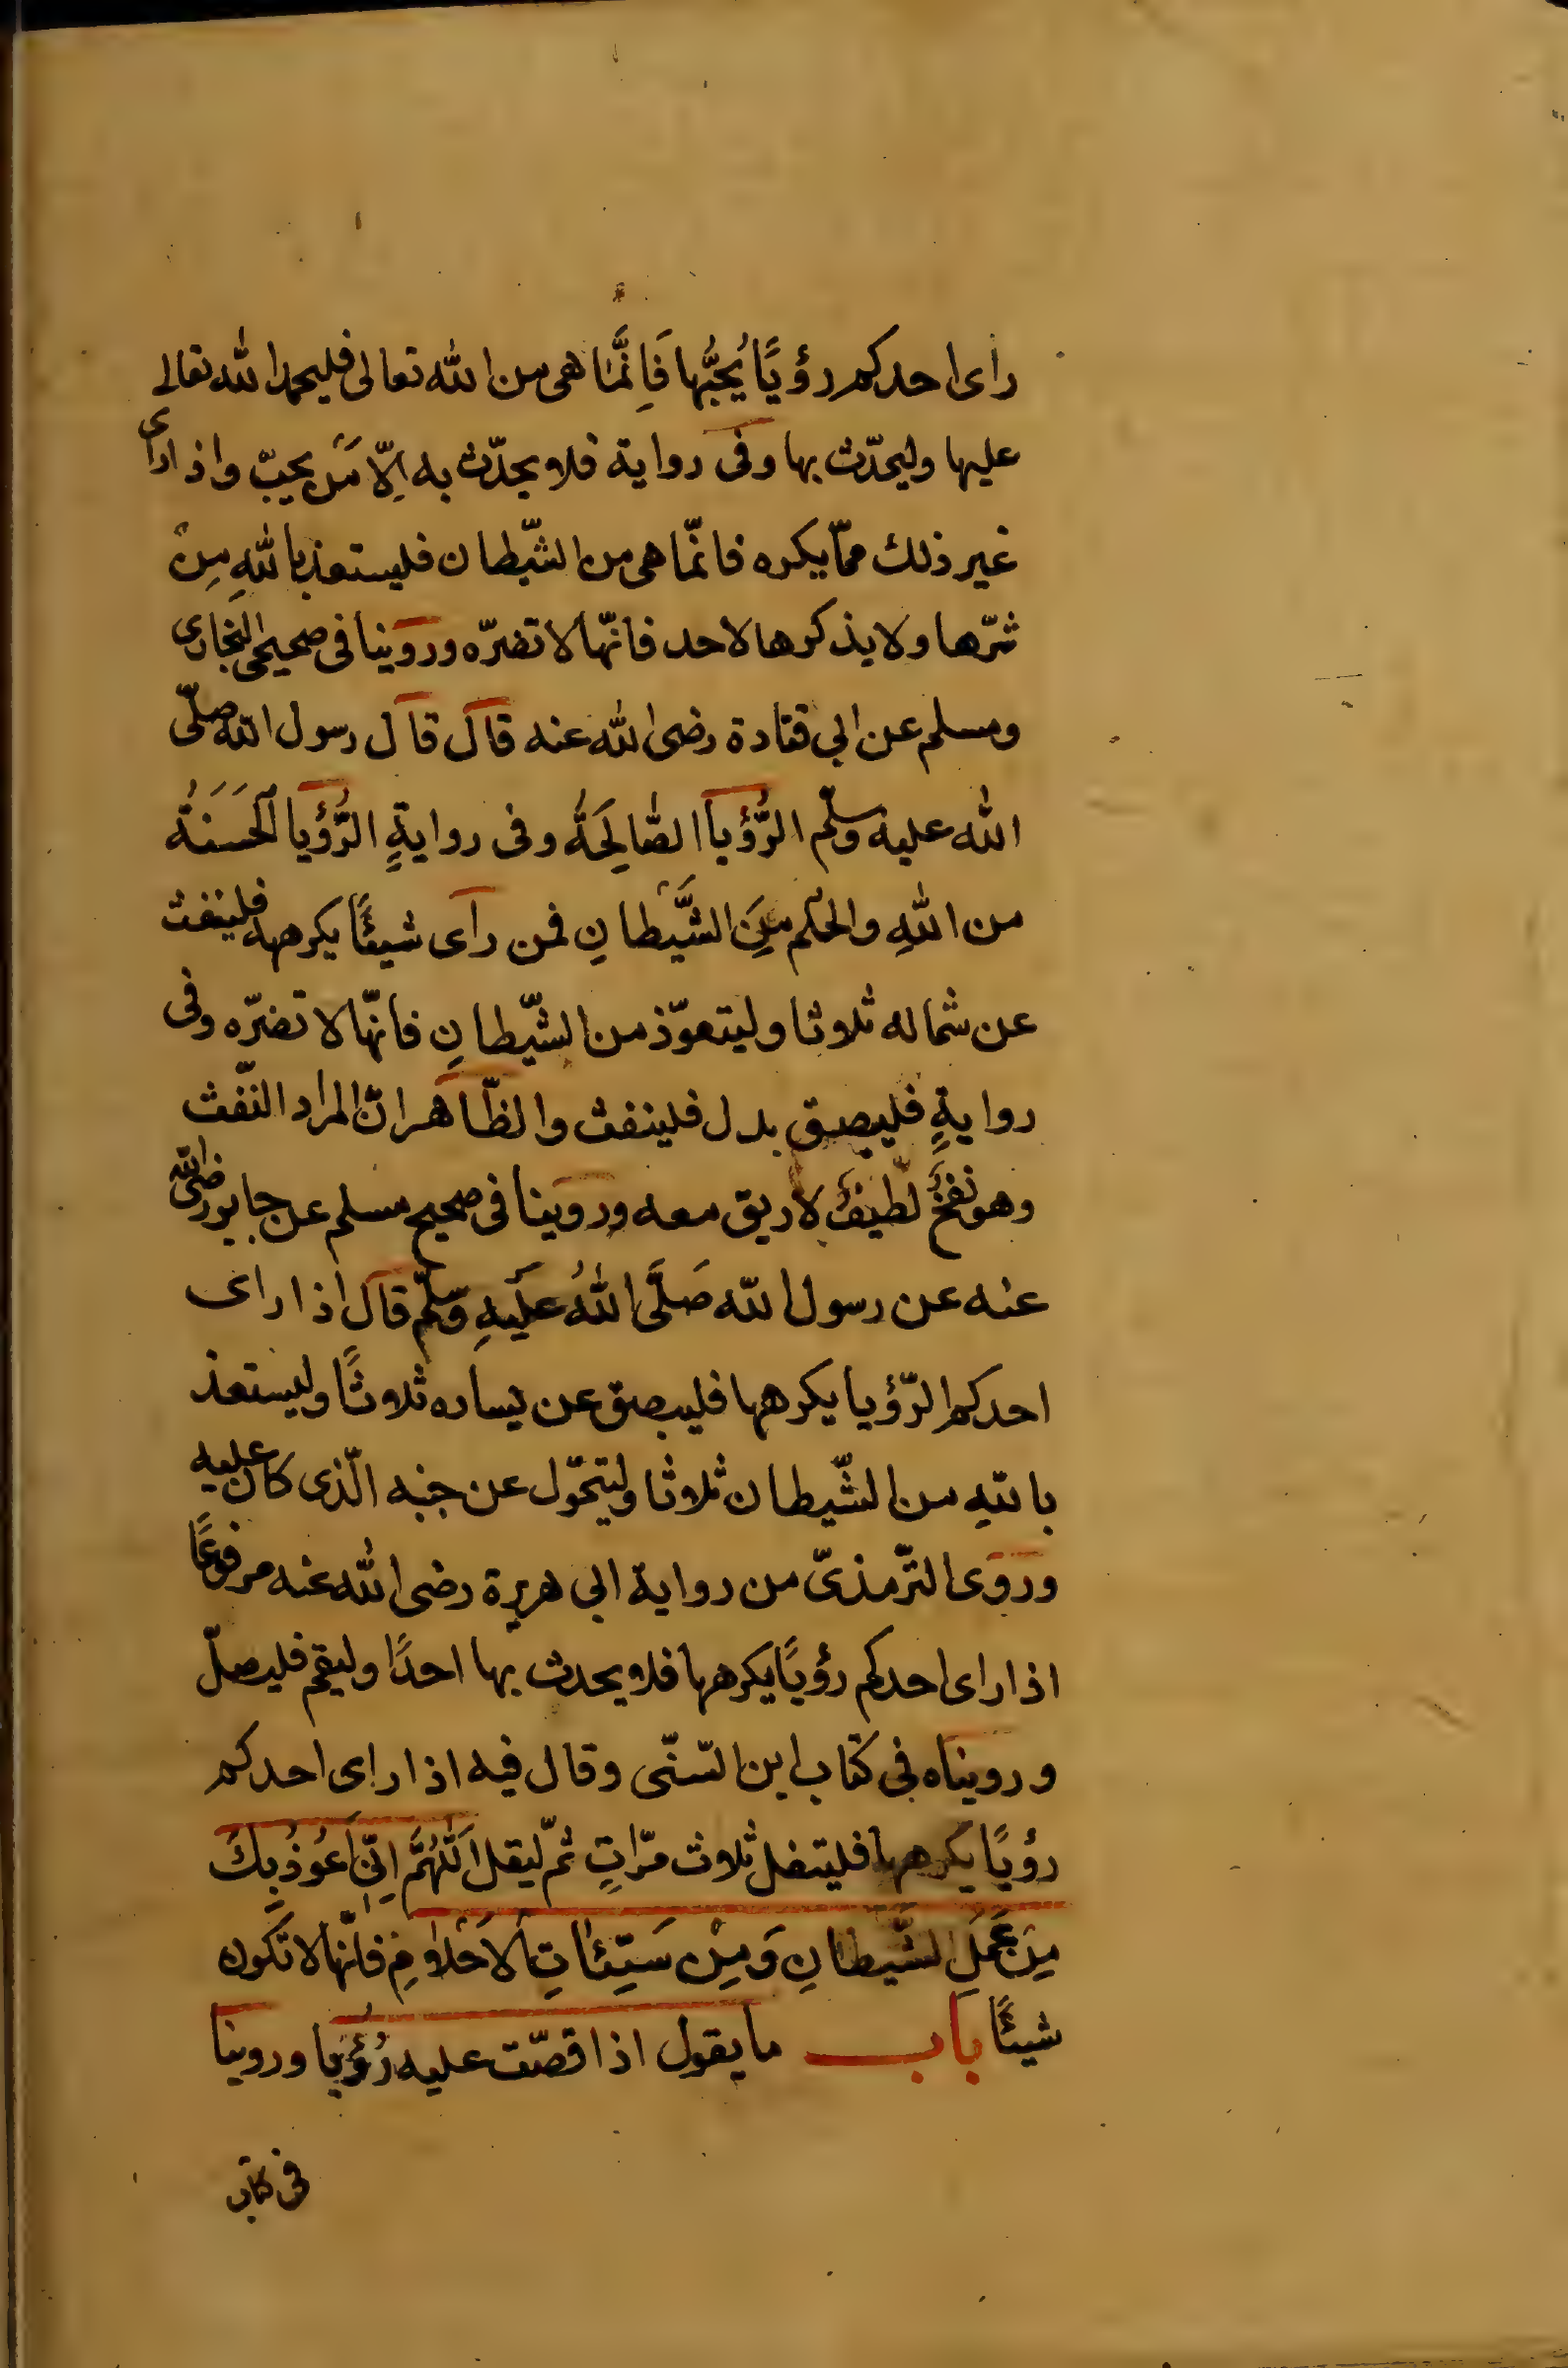 راى احدكم رؤيًا يُحبُّها فَاِنَّمَا هى من الله تعالى فليحمد الله تعالى
عليها وليحدّث بها وفى رواية فلا يحدّث به اِلّا مَن يحبّ واذا راى
غير ذلك ممّا يكره فانّما هى من الشّيطان فليستعذ باللهِ مِنْ
شرّها ولا يذكرها لاحد فانّها لا تضرّه وروينا فى صحيحى البخارى
ومسلم عن ابى قتادة رضى الله عنه قال قال رسول الله صلّى
الله عليه وسلّم الرُّؤيا الصّالِحَةُ وفى روايةٍ الرُّؤيا الحَسَنَةُ
من اللهِ والحُلم مِنَ الشَّيْطانِ فمن راى شيئًا يكرهه فلينفث
عن شماله ثلاثا وليتعوّذ من الشّيطانِ فانّها لا تضرّه وفى
روايةٍ فليبصق بدل فلينفث والظّاهر انّ المراد النّفث
وهو نفخٌ لطيفٌ لا ريق معه وروينا فى صحيح مسلم عن جابر رضى الله
عنه عن رسول الله صَلَّى اللهُ عَلَيهِ وسلّم قال اذا راى
احدكم الرّؤيا يكرهها فليبصق عن يساره ثلاثًا وليستعذ
باللهِ من الشّيطان ثلاثا وليتحوّل عن جنبه الّذى كان عليه
وروى التّرمذىّ من رواية ابى هريرة رضى الله عنه مرفوعًا
اذا راى احدكم رؤيًا يكرهها فلا يحدث بها احدًا وليقم فليصلّ
ورويناه فى كتاب ابن السّنّى وقال فيه اذا راى احدكم
رؤيًا يكرهها فليتفل ثلاث مرّاتٍ ثمّ ليقل اَللّهُمَّ اِنّى اَعُوذُ بِكَ
مِن عَمَلِ الشّيطانِ وَمِنْ سَيِّئاتِ الاَحْلامِ فانّها لا تكون
شيئًا باب ما يقول اذا قصّت عليه رُؤيا وروينا
فى كتاب